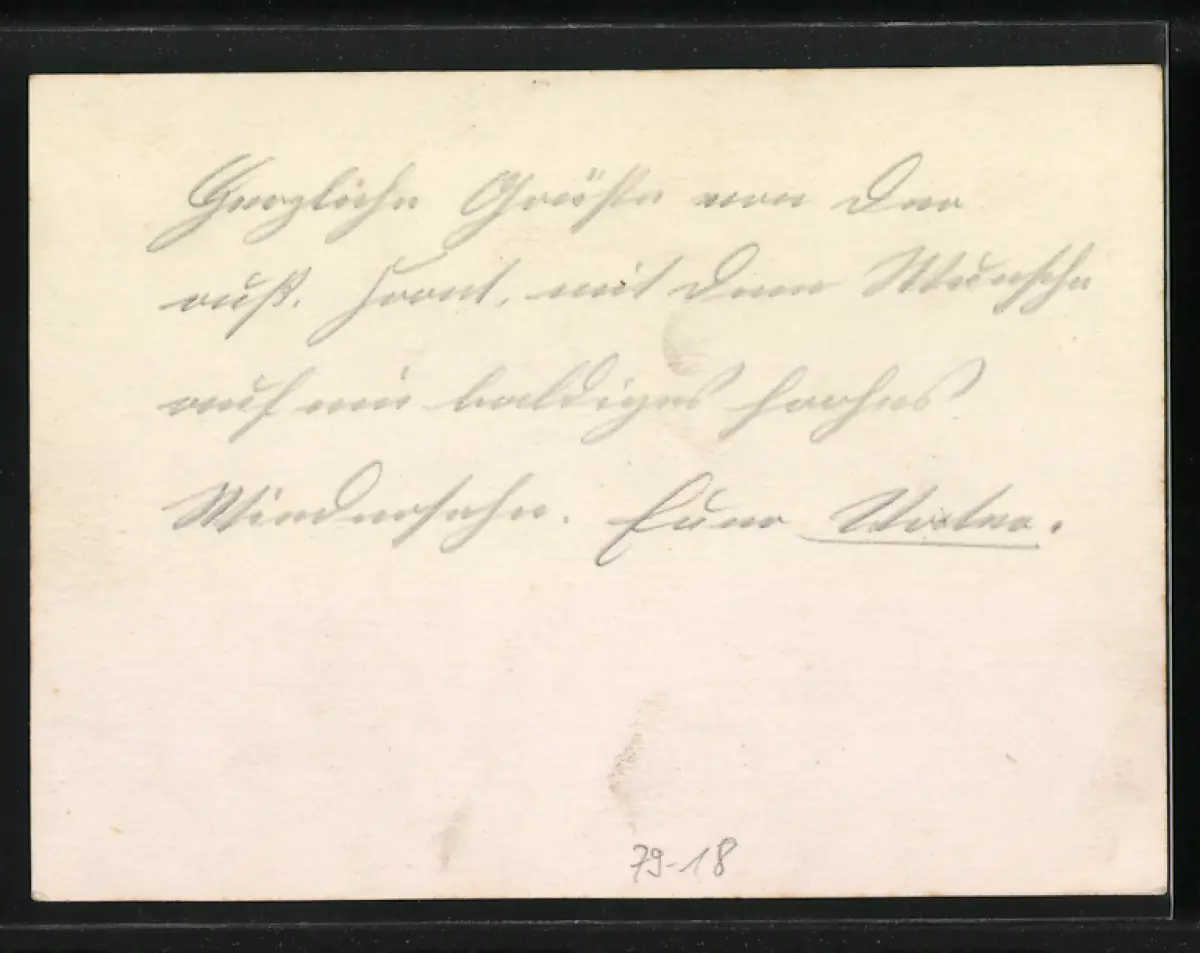 Herzliche Grüße von der
russ. Front, mit dem Wunsche
auf ein baldiges frohes
Wiedersehn. Euer Vater.
79-18